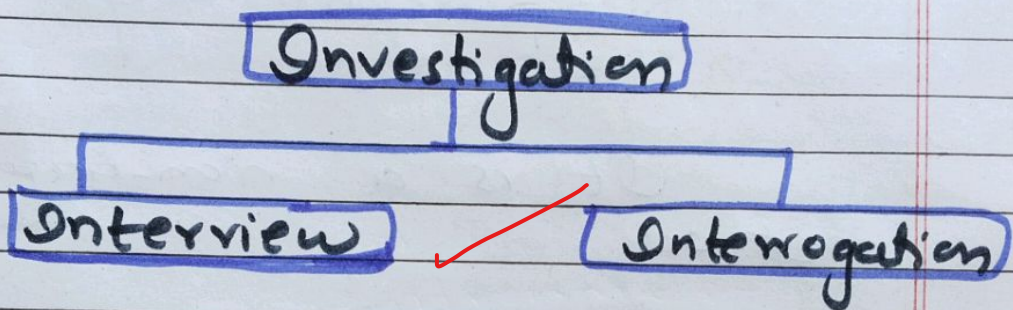 Investigation
Interview
Interrogation